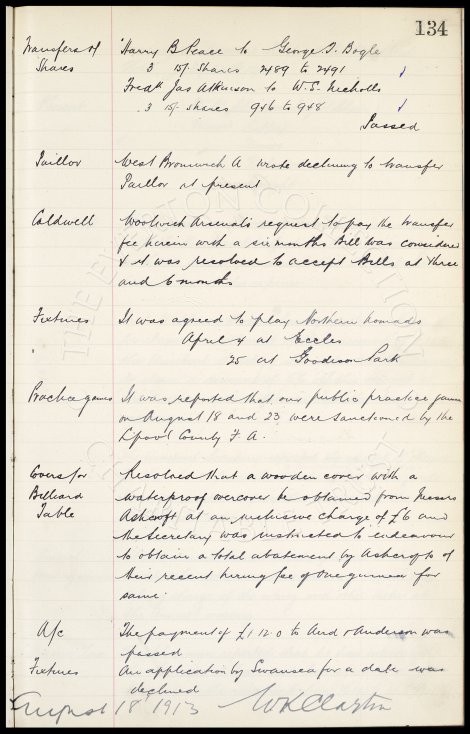 134
Transfers of Harry B Peace to George T. Bogle
Shares 3 15/- shares 2489 to 2491
Fredk Jas Atkinson to W.S. Nicholls
3 15/- shares 946 to 948
Passed
Taillor West Bromwich A wrote declining to transfer
Taillor at present
Caldwell Woolwich Arsenals request to pay the transfer
fee herein with a six months Bill was considered
& it was resolved to accept Bills at three
and 6 months
Fixtures It was agreed to play Northern Nomads
April 4 at Eccles
25 at Goodison Park
Practice games It was reported that our public practice games
on August 18 and 23 were sanctioned by the
L'pool County F.A.
Covers for Resolved that a wooden cover with a
Billiard waterproof overcover be obtained from Messrs
Table Ashcroft at an inclusive charge of £6 and
the Secretary was instructed to endeavour
to obtain a total abatement by Ashcrofts of
their recent hiring fee of One guinea for
same.
A/c The payment of £1.12.0 to And & Anderson was
passed
Fixtures An application by Swansea for a date was
declined
August 18 1913 W R Clayton
THE EVERTON COLLECTION